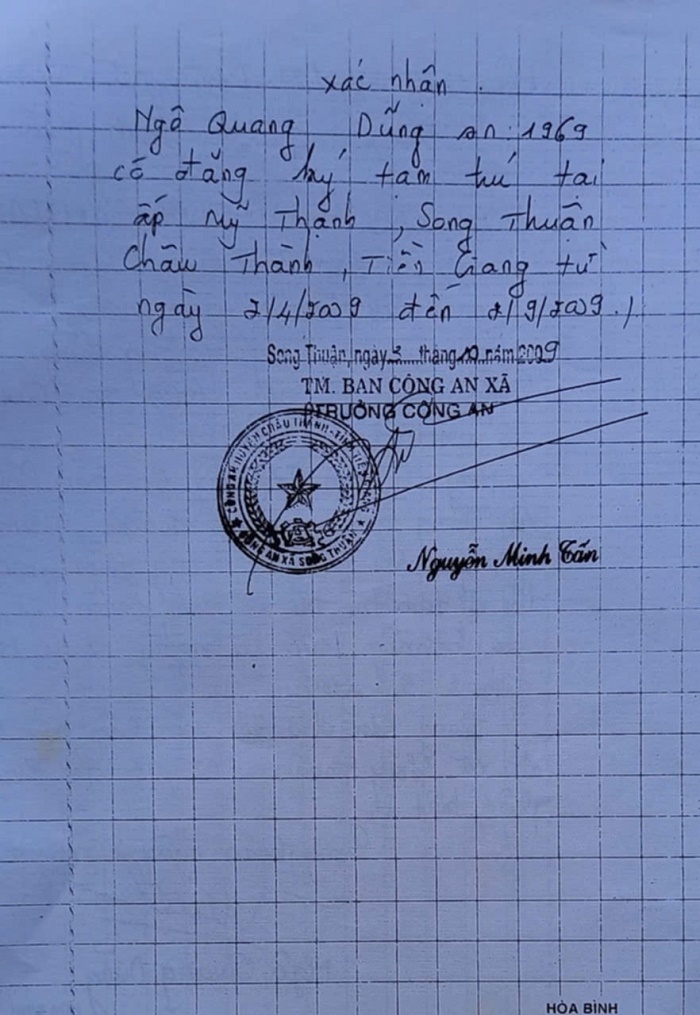 xác nhận.
Ngô Quang Dũng sn: 1969
có đăng ký tạm trú tại
ấp Mỹ Thạnh, Song Thuận
Châu Thành, Tiền Giang từ
ngày 2/4/2009 đến 2/9/2009./
Song Thuận, ngày 3 tháng 10 năm 2009
TM. BAN CÔNG AN XÃ
TRƯỞNG CÔNG AN
CÔNG AN HUYỆN CHÂU THÀNH - TỈNH TIỀN GIANG
CÔNG AN XÃ SONG THUẬN
Nguyễn Minh Tấn
HÒA BÌNH